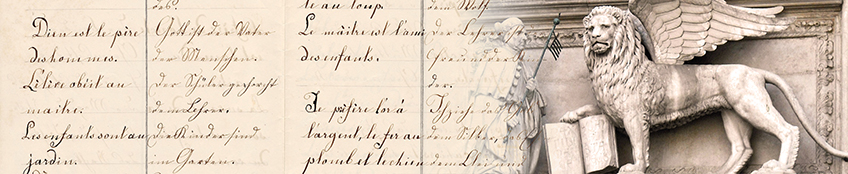 Dieu est le père
des hommes.
L'élève obéit au
maitre.
Les enfants sont au
jardin.
Gott ist der Vater
der Menschen.
Der Schüler gehorcht
dem Lehrer.
Die Kinder sind
im Garten.
le au loup.
Le maître est l'ami
des enfants.
Je préfère l'or à
l'argent, le fer au
plomb et le chien
dem Wolf.
der Lehrer
Freund der
der.
Ich ziehe das
dem Silber,
dem Blei